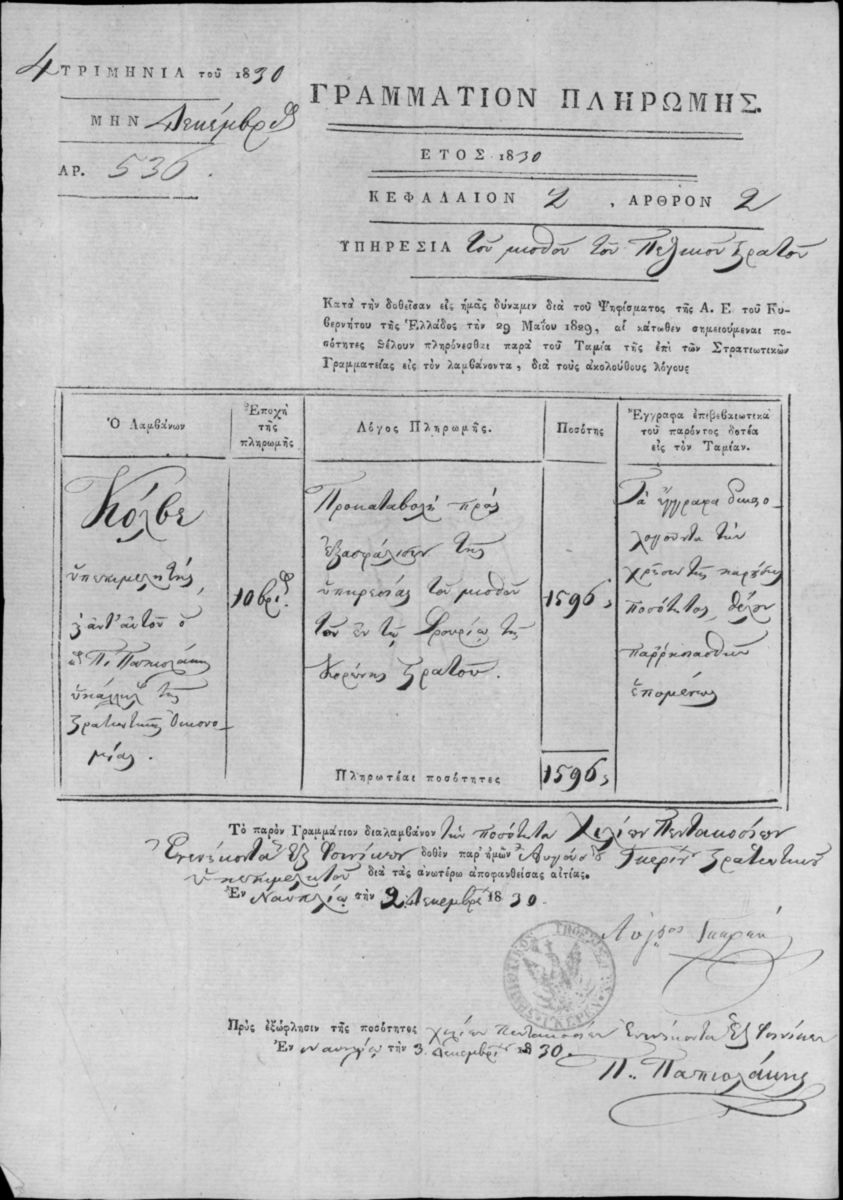 4 ΤΡΙΜΗΝΙΑ τοῦ 1830
ΜΗΝ Δεκέμβριος
ΑΡ. 536.
ΓΡΑΜΜΑΤΙΟΝ ΠΛΗΡΩΜΗΣ.
ΕΤΟΣ 1830
ΚΕΦΑΛΑΙΟΝ 2, ΑΡΘΡΟΝ 2
ΥΠΗΡΕΣΙΑ τοῦ μισθοῦ τοῦ Πεζικοῦ Στρατοῦ
Κατὰ τὴν δοθεῖσαν εἰς ἡμᾶς δύναμιν διὰ τοῦ Ψηφίσματος τῆς Α. Ε. τοῦ Κυ-
βερνήτου τῆς Ἑλλάδος τὴν 29 Μαΐου 1829, αἱ κάτωθεν σημειούμεναι πο-
σότητες θέλουν πληρόνεσθαι παρὰ τοῦ Ταμία τῆς ἐπὶ τῶν Στρατιωτικῶν
Γραμματείας εἰς τὸν λαμβάνοντα, διὰ τοὺς ἀκολούθους λόγους
Ὁ Λαμβάνων
Ἐποχὴ
τῆς
πληρωμῆς
Λόγος Πληρωμῆς.
Ποσότης
Ἔγγραφα ἐπιβεβαιωτικὰ
τοῦ παρόντος δοτέα
εἰς τὸν Ταμίαν.
Κόλβε
ὑπεπιμελητής,
ἀντ' αὐτοῦ ὁ
Π. Παπιολάκης
ὑπάλληλ. τῆς
στρατιωτικῆς Οἰκονο-
μίας.
10βρί.
Προκαταβολὴ πρὸς
ἐξασφάλισιν τῆς
ὑπηρεσίας τοῦ μισθοῦ
τοῦ ἐν τῷ Φρουρίῳ τῆς
Κορώνης Στρατοῦ.
1596,
Τὰ ἔγγραφα δικαιο-
λογοῦντα τὴν
χρῆσιν τῆς παρούσης
ποσότητος, θέλουν
παρρησιασθῆν
ἑπομένως
Πληρωτέαι ποσότητες 1596,
Τὸ παρὸν Γραμμάτιον διαλαμβάνον τὴν ποσότητα Χιλίων Πεντακοσίων
Ἐνενήκοντα Ἓξ Φοινίκων δοθὲν παρ' ἡμῶν Αὐγούστου Γκερὶν Στρατιωτικοῦ
Ὑπεπιμελητοῦ διὰ τὰς ἀνωτέρω ἀποφανθείσας αἰτίας.
Ἐν Ναυπλίῳ τὴν 2 Δεκεμβρίου 1830.
Πρὸς ἐξώφλησιν τῆς ποσότητος χιλίων Πεντακοσίων Ἐνενήκοντα Ἓξ Φοινίκων
Ἐν Ναυπλίῳ τὴν 3. Δεκεμβρίου 1830.
Π. Παπιολάκης